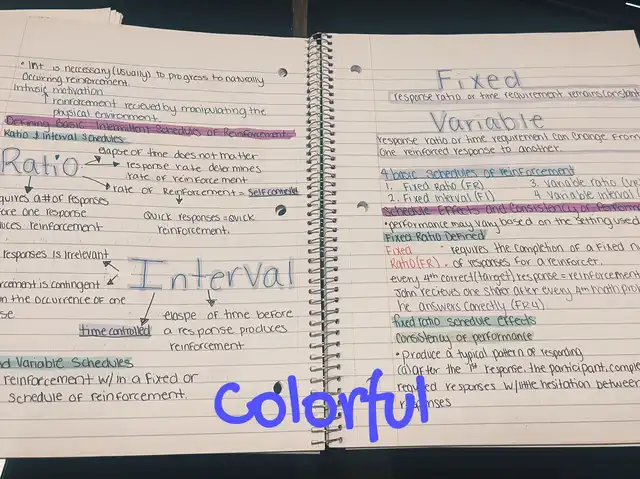 • Int is neccessary (usually) to progress to naturally
occuring reinforcement.
Intrinsic motivation
reinforcement recieved by manipulating the
physical environment.
Defining Basic Intermittent Schedules of Reinforcement
Ratio & interval schedules
Ratio
elapse of time does not matter
response rate determines
rate of reinforcement
rate of Reinforcement = self controlled
quires a # of responses
fore one response
duces reinforcement
Quick responses = quick
reinforcement.
responses is irrelevant
Interval
rcement is contingent
n the occurence of one
se
time controlled
elapse of time before
a response produces
reinforcement
d Variable Schedules
reinforcement w/in a fixed or
schedule of reinforcement.
Fixed
response ratio or time requirement remains constant
Variable
response ratio or time requirement can change from
one reinforced response to another.
4 basic schedules of reinforcement
1. Fixed Ratio (FR)
3. Variable ratio
2. Fixed Interval (FI)
4. Variable interval
Schedule Effects and Consistency of Perform
• performance may vary based on the setting used
Fixed Ratio Defined
Fixed Ratio (FR).
• requires the completion of a fixed
of responses for a reinforcer.
every 4th correct (target) response = reinforcement
John recieves one star after every 4th math prob
he answers correctly (FR4)
fixed ratio schedule effects
consistency of performance
• Produce a typical pattern of responding
(a) after the 1st response, the participant comple
required responses w/little hesitation between
responses
Colorful